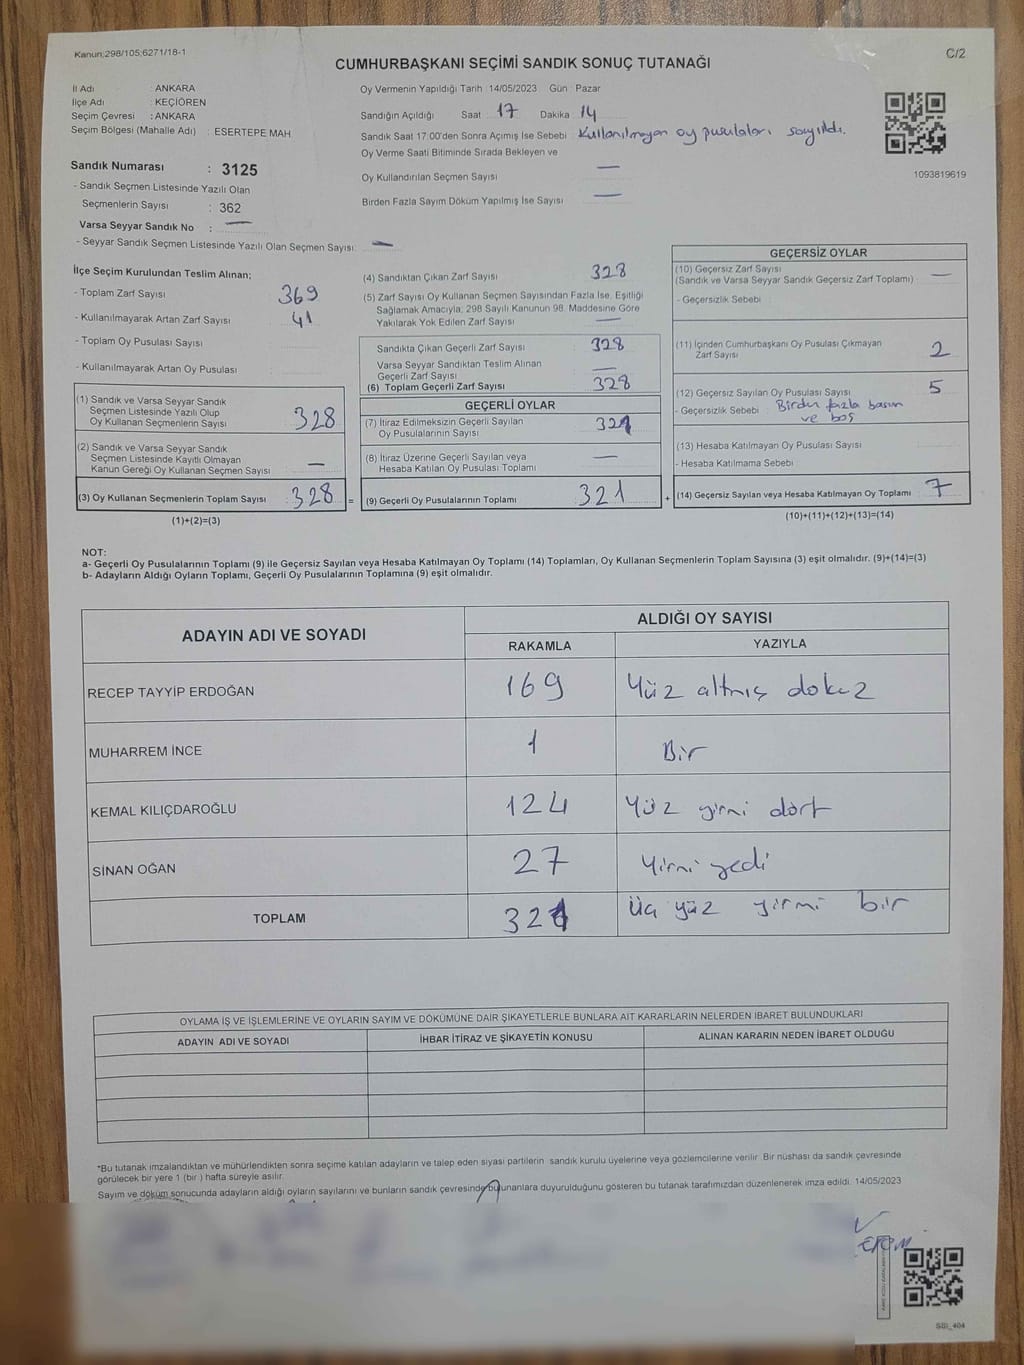 Kanun:298/105;6271/18-1
C/2
CUMHURBAŞKANI SEÇİMİ SANDIK SONUÇ TUTANAĞI
İl Adı : ANKARA
İlçe Adı : KEÇİÖREN
Seçim Çevresi : ANKARA
Seçim Bölgesi (Mahalle Adı) : ESERTEPE MAH.
Sandık Numarası : 3125
- Sandık Seçmen Listesinde Yazılı Olan
Seçmenlerin Sayısı : 362
Varsa Seyyar Sandık No : —
- Seyyar Sandık Seçmen Listesinde Yazılı Olan Seçmen Sayısı: —
Oy Vermenin Yapıldığı Tarih : 14/05/2023 Gün : Pazar
Sandığın Açıldığı Saat 17 Dakika 14
Sandık Saat 17.00'den Sonra Açımış İse Sebebi Kullanılmayan oy pusulaları sayıldı.
Oy Verme Saati Bitiminde Sırada Bekleyen ve
Oy Kullandırılan Seçmen Sayısı —
Birden Fazla Sayım Döküm Yapılmış İse Sayısı —
1093819619
İlçe Seçim Kurulundan Teslim Alınan;
- Toplam Zarf Sayısı 369
- Kullanılmayarak Artan Zarf Sayısı 41
- Toplam Oy Pusulası Sayısı
- Kullanılmayarak Artan Oy Pusulası
(1) Sandık ve Varsa Seyyar Sandık
Seçmen Listesinde Yazılı Olup
Oy Kullanan Seçmenlerin Sayısı 328
(2) Sandık ve Varsa Seyyar Sandık
Seçmen Listesinde Kayıtlı Olmayan
Kanun Gereği Oy Kullanan Seçmen Sayısı —
(3) Oy Kullanan Seçmenlerin Toplam Sayısı 328 =
(1)+(2)=(3)
(4) Sandıktan Çıkan Zarf Sayısı 328
(5) Zarf Sayısı Oy Kullanan Seçmen Sayısından Fazla İse, Eşitliği
Sağlamak Amacıyla; 298 Sayılı Kanunun 98. Maddesine Göre
Yakılarak Yok Edilen Zarf Sayısı —
Sandıkta Çıkan Geçerli Zarf Sayısı 328
Varsa Seyyar Sandıktan Teslim Alınan
Geçerli Zarf Sayısı —
(6) Toplam Geçerli Zarf Sayısı 328
GEÇERLİ OYLAR
(7) İtiraz Edilmeksizin Geçerli Sayılan
Oy Pusulalarının Sayısı 321
(8) İtiraz Üzerine Geçerli Sayılan veya
Hesaba Katılan Oy Pusulası Toplamı —
(9) Geçerli Oy Pusulalarının Toplamı 321 +
GEÇERSİZ OYLAR
(10) Geçersiz Zarf Sayısı —
(Sandık ve Varsa Seyyar Sandık Geçersiz Zarf Toplamı)
- Geçersizlik Sebebi
(11) İçinden Cumhurbaşkanı Oy Pusulası Çıkmayan
Zarf Sayısı 2
(12) Geçersiz Sayılan Oy Pusulası Sayısı 5
- Geçersizlik Sebebi : Birden fazla basım
ve boş
(13) Hesaba Katılmayan Oy Pusulası Sayısı
- Hesaba Katılmama Sebebi
(14) Geçersiz Sayılan veya Hesaba Katılmayan Oy Toplamı 7
(10)+(11)+(12)+(13)=(14)
NOT:
a- Geçerli Oy Pusulalarının Toplamı (9) ile Geçersiz Sayılan veya Hesaba Katılmayan Oy Toplamı (14) Toplamları, Oy Kullanan Seçmenlerin Toplam Sayısına (3) eşit olmalıdır. (9)+(14)=(3)
b- Adayların Aldığı Oyların Toplamı, Geçerli Oy Pusulalarının Toplamına (9) eşit olmalıdır.
ADAYIN ADI VE SOYADI
ALDIĞI OY SAYISI
RAKAMLA YAZIYLA
RECEP TAYYİP ERDOĞAN 169 Yüz altmış dokuz
MUHARREM İNCE 1 Bir
KEMAL KILIÇDAROĞLU 124 Yüz yirmi dört
SİNAN OĞAN 27 Yirmi yedi
TOPLAM 321 Üç yüz yirmi bir
OYLAMA İŞ VE İŞLEMLERİNE VE OYLARIN SAYIM VE DÖKÜMÜNE DAİR ŞİKAYETLERLE BUNLARA AİT KARARLARIN NELERDEN İBARET BULUNDUKLARI
ADAYIN ADI VE SOYADI İHBAR İTİRAZ VE ŞİKAYETİN KONUSU ALINAN KARARIN NEDEN İBARET OLDUĞU
*Bu tutanak imzalandıktan ve mühürlendikten sonra seçime katılan adayların ve talep eden siyasi partilerin sandık kurulu üyelerine veya gözlemcilerine verilir. Bir nüshası da sandık çevresinde
görülecek bir yere 1 (bir ) hafta süreyle asılır.
Sayım ve döküm sonucunda adayların aldığı oyların sayılarını ve bunların sandık çevresinde bulunanlara duyurulduğunu gösteren bu tutanak tarafımızdan düzenlenerek imza edildi. 14/05/2023